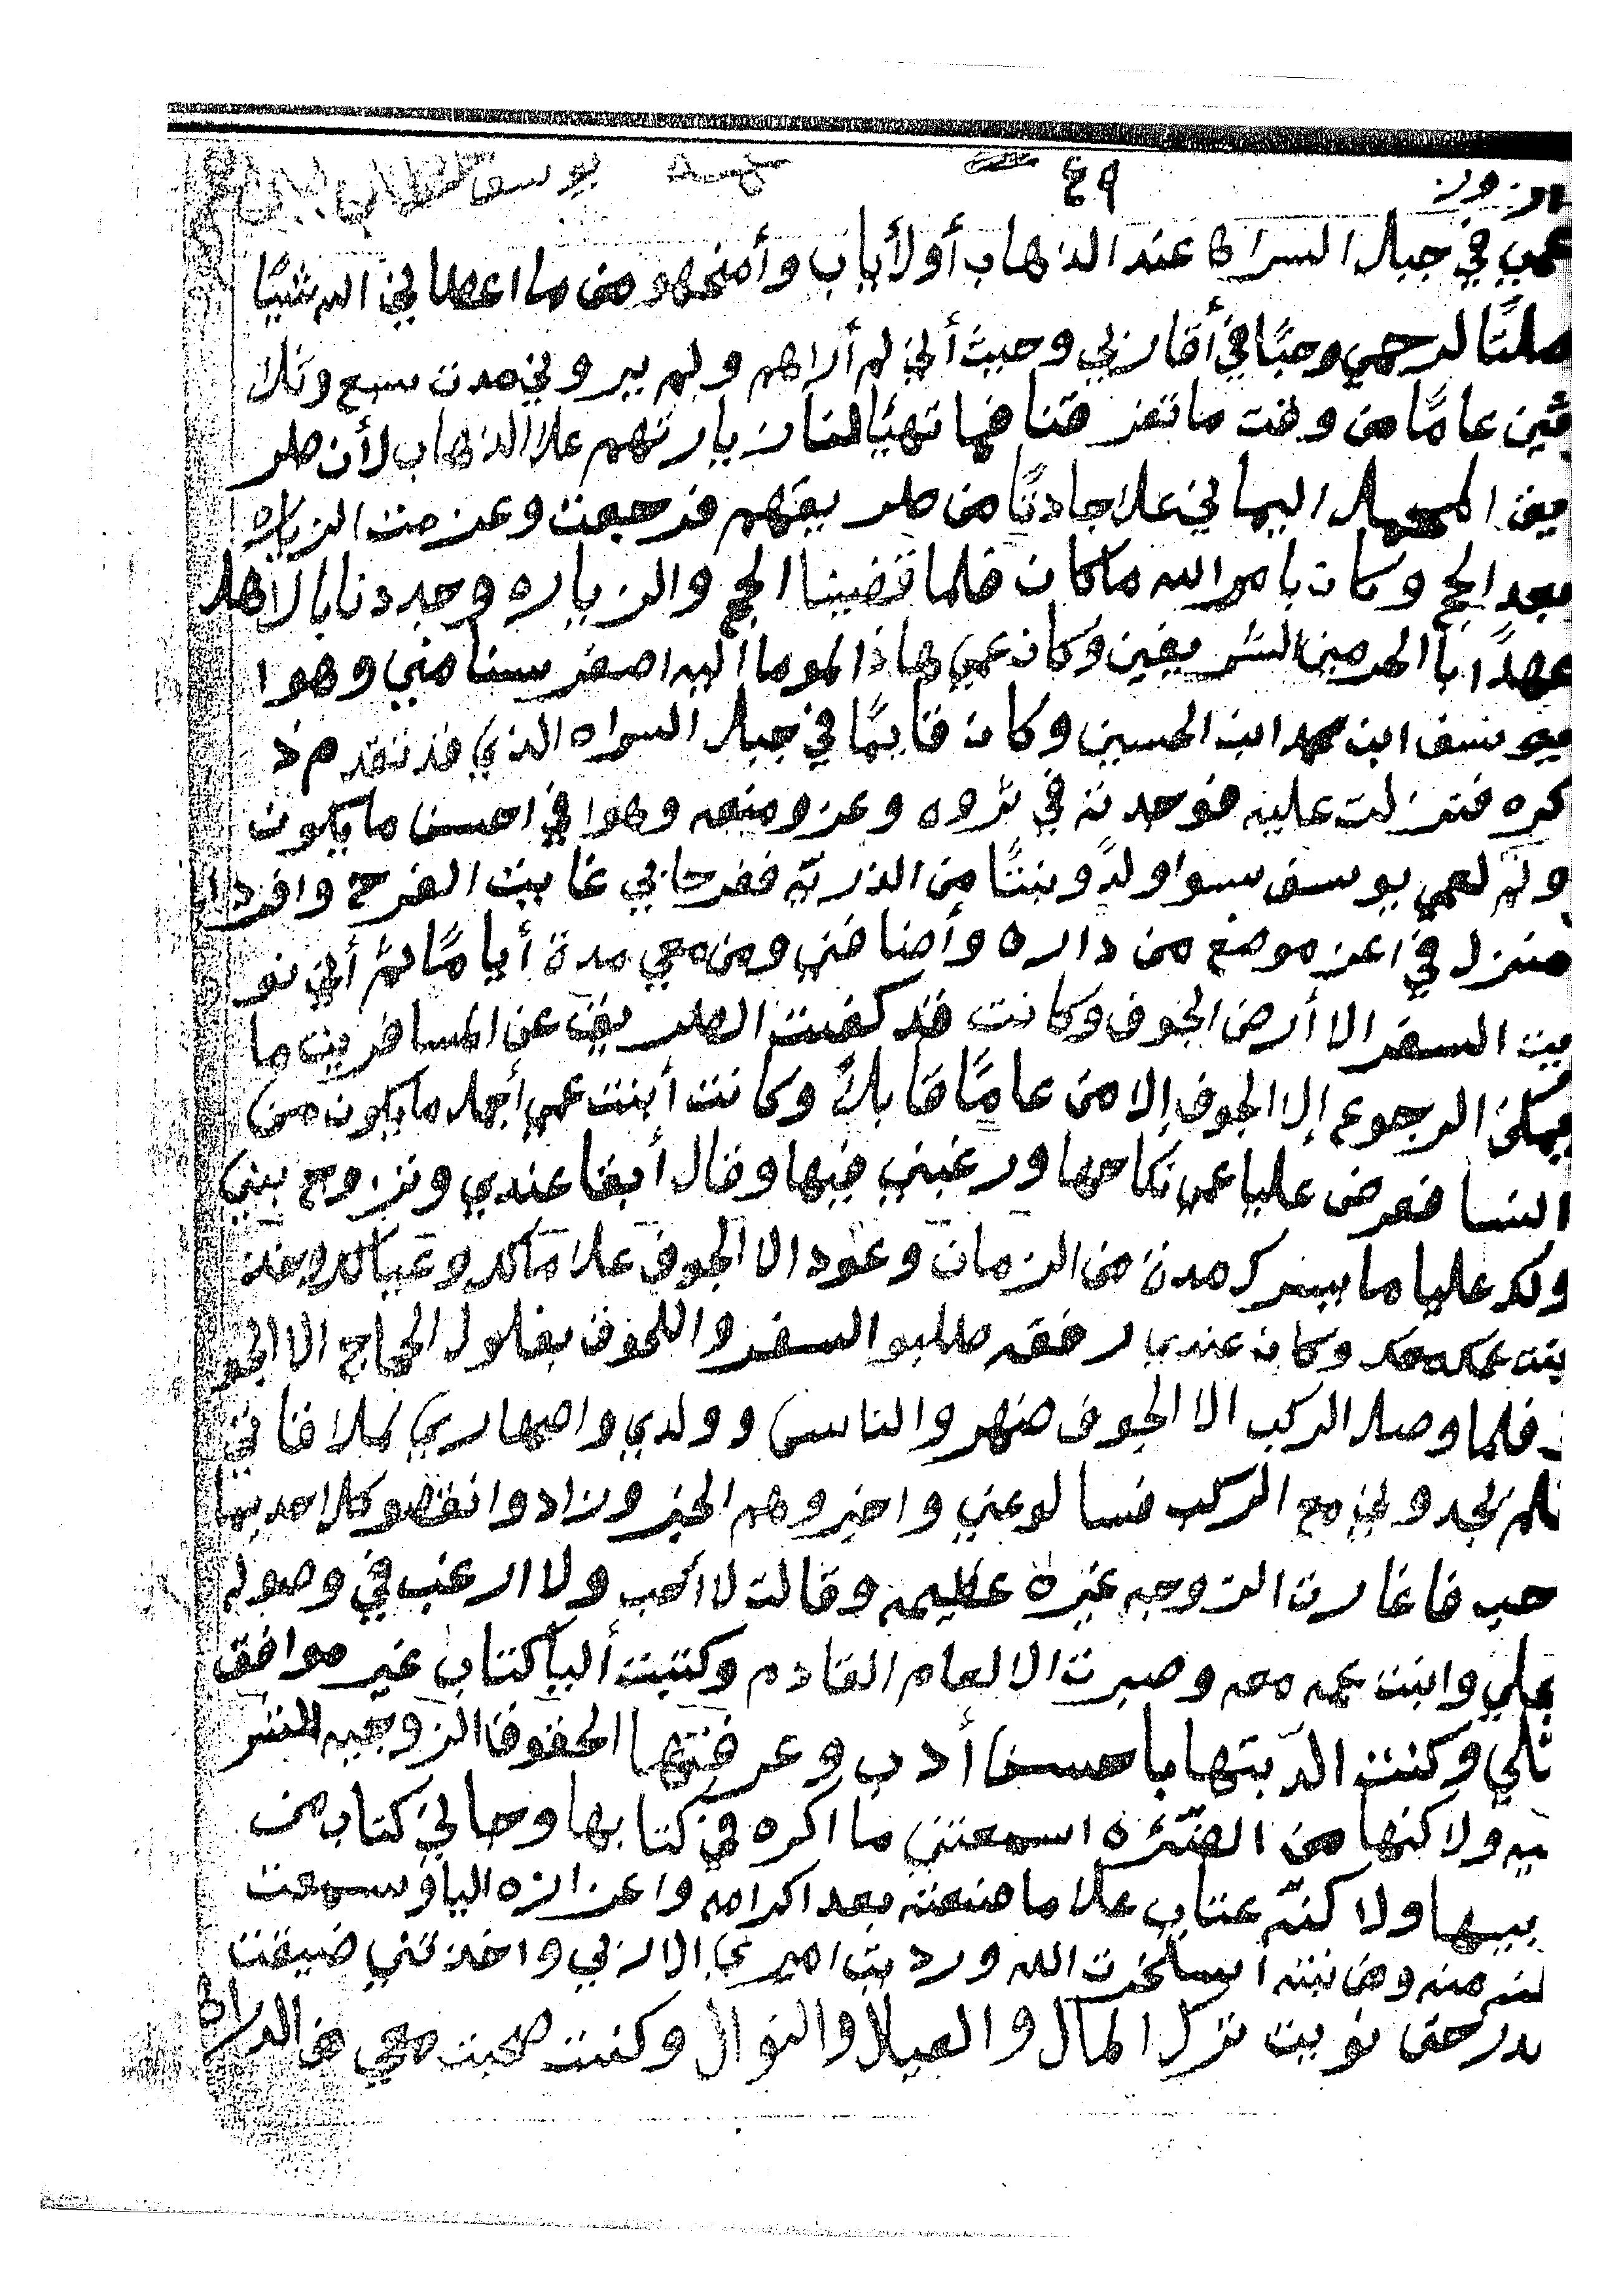 ازور ٤٩
عمي في جبل السراة عند الذهاب أو لأياب وأمنحهو من ما اعطاني الله شيئًا
صلتًا لرحمي وحبًا في أقاربي وحيث أني لم أراهم ولم يروني مدت سبع وثلا
ثين عامًا من وقت ما تفرقنا فما تهيّا لنا زيارتهم علا الذهاب لأن طر
يق المحمل اليماني علا جادتًا من طريقهم فرجعت وعزمت الزياره
بعد الحج وكان بامر الله ماكان فلما قضينا الحج والزياره وجددنا بالأهل
عهدًا باالحرمين الشريفين وكان عمي هاذا لموما أليه اصغر سنا مني وهوا
يوسف ابن محمد ابن الحسين وكان قايمًا في جبل السراه الذي قد تقدم ذ
كره فنزلت عليه فوجدته في ثروه وعز ومنعه وهوا في احسن ما يكون
ولم لعمي يوسف سوا ولدً وبنتًا من الذريّه ففرحا بي غايت الفرح وافرد لي
منزل في اعز موضع من داره وأضافني ومن معي مدة أيامًا ثم أني نو
يت السفر الا أرض الجوف وكانت قد كفت الطريق عن المسافرين ما
يمكن الرجوع إلا الجوف إلا من عامًا قابلً وكانت أبنت عمي أجمل مايكون من
النسا فعرض عليا عمي نكاحها ورغبني فيها وقال أبقا عندي وتزوج بنتي
ولك عليا ما يسرك مدة من الزمان وعود الا الجوف علا مالك وعيالك وخذ
بنت عمك معك وكان عندي رفقه طلبو السفر واللحوق بفلول الحجاج الا الجو
ف فلما وصل الركب الا الجوف ضهرو الناس وولدي واصهاري لملاقاتي
فلم يجدوني مع الركب فسالو عني واخبروهم الخبر وزادوا نقصو كلا حد بما
حب فاغارت الزوجه غيرة عظيمه وقالت لا احب ولا ارغب في وصوله
علي وابنت عمه معه وصبرت الا العام القادم وكتبت أليا كتاب غير موافق
ثلي وكنت ادّبتها باحسن أدب وعرفتها الحقوق الزوجيه
يه ولاكنها من اسمعتني ما اكره في كتابها وجاني كتاب من
بيها ولاكنّه عتاب علا ما صنعته بعد اكرامه واعزازه اليا وسمعت
منه استخرت الله ورديت امري الا ربي واخذتني ضيقت
صدر حتى نويت ترك المال والعيال والنوال وكنت صحبت معي من الدراهم